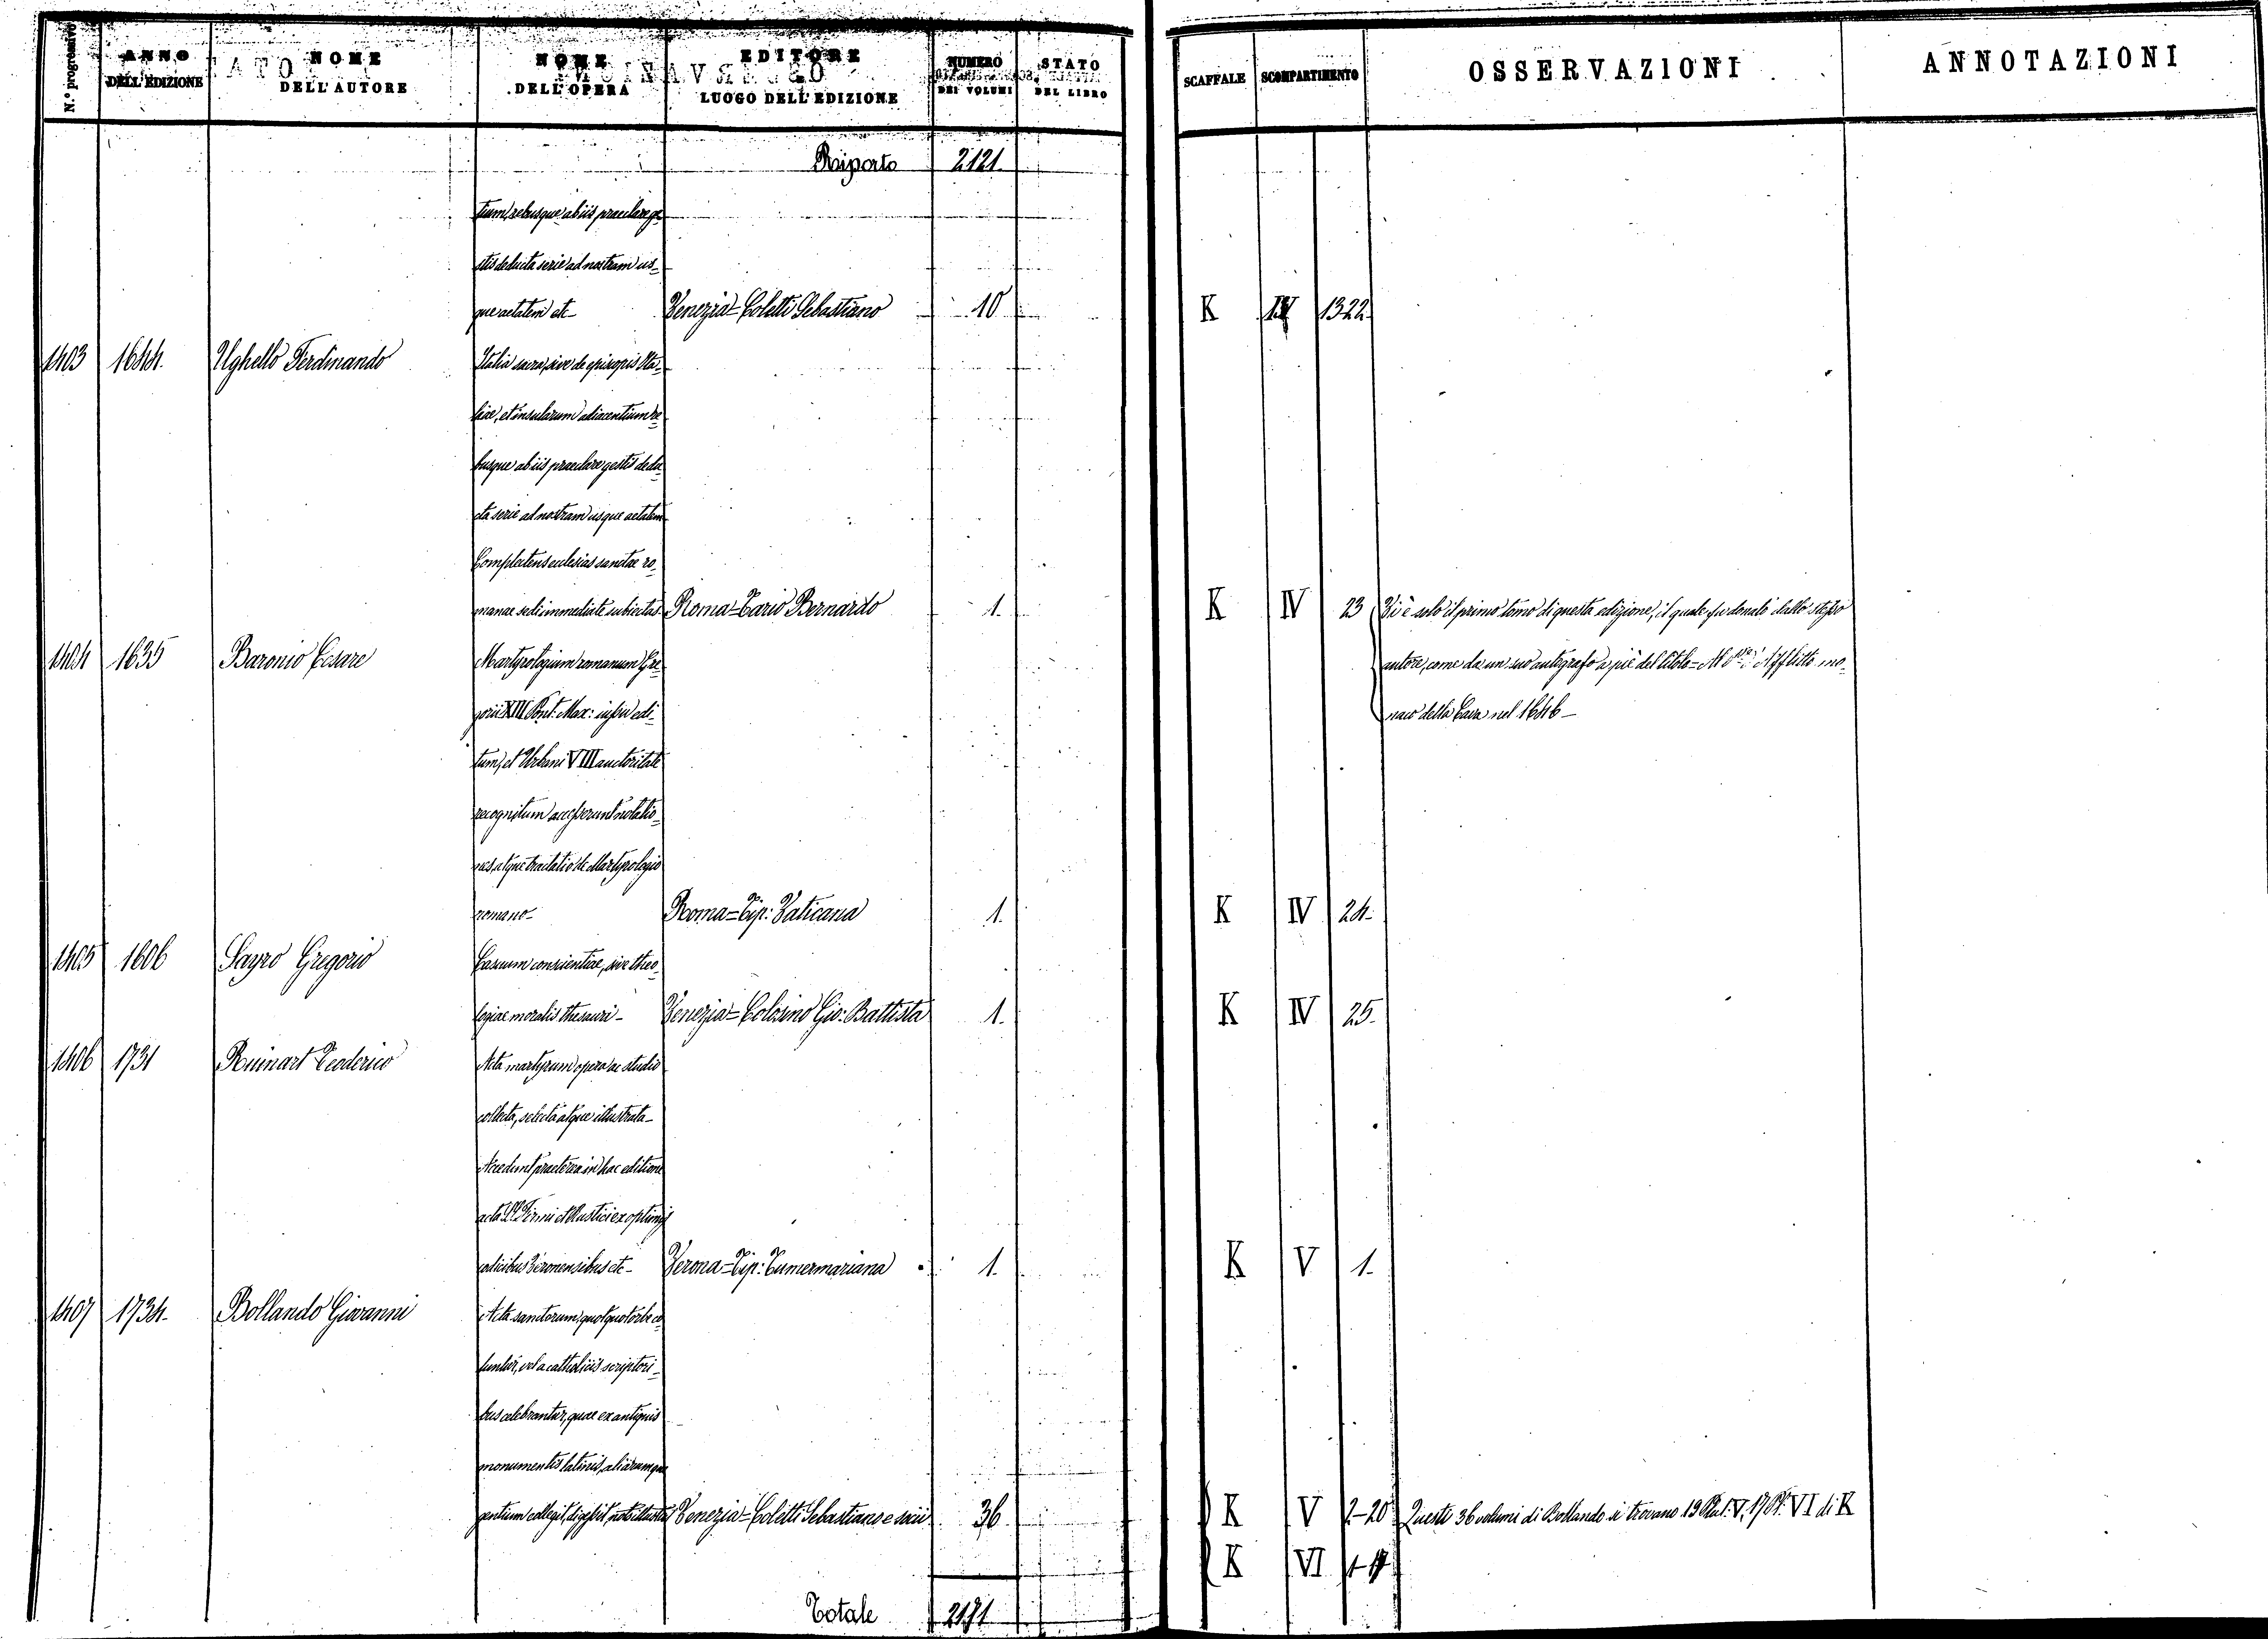 N.º progressivo ANNO DELL'EDIZIONE NOME DELL'AUTORE NOME DELL'OPERA EDITORE LUOGO DELL'EDIZIONE NUMERO DEI VOLUMI STATO DEL LIBRO SCAFFALE SCOMPARTIMENTO OSSERVAZIONI ANNOTAZIONI
Riporto 2121.
tium, rebusque ab iis praeclare ge-
stis deducta serie ad nostram us-
que aetatem etc- Venezia=Coletti Sebastiano 10 K IV 1322.
1403 1644. Ughello Ferdinando Italia sacra, sive de episcopis Ita-
liae, et insularum adiacentium re-
busque ab iis praeclare gestis dedu-
cta serie ad nostram usque aetatem
Complectens ecclesias sanctae ro-
manae sedi immediate subiectas. Roma=Tario Bernardo 1. K IV 23 Vi è solo il primo tomo di questa edizione, il quale fu donato dallo stesso
1404 1635 Baronio Cesare Martyrologium romanum Gre- autore, come da un suo autografo a piè del titolo= Afflitto mo-
gorii XIII Pont: Max: iussu edi- naco della Cava nel 1646-
tum, et Urbani VIII auctoritate
recognitum accesserunt notatio-
nes atque tractatio de Martyrologio
romano- Roma=Tip: Vaticana 1. K IV 24.
1405 1606 Sayro Gregorio Casuum conscientiae, sive theo-
logiae moralis thesauri- Venezia=Colosino Gio: Battista 1. K IV 25.
1406 1731 Ruinart Teoderico Acta martyrum opera ac studio
collecta, selecta atque illustrata-
Accedunt praeterea in hac editione
acta SS. Firmi et Rustici ex optimis
codicibus Veronensibus etc- Verona=Tip: Tumermariana 1. K V 1.
1407 1734. Bollando Giovanni Acta sanctorum, quotquot orbe co-
luntur, vel a catholicis scriptori-
bus celebrantur, quae ex antiquis
monumentis latinis, aliarumque
gentium collegit, digessit, notis illustr Venezia=Coletti Sebastiano e socii 36. K V 2-20 Questi 36 volumi di Bollando si trovano 19 Plut. V, 17 Pl. VI di K
K VI 1-17
Totale 2171